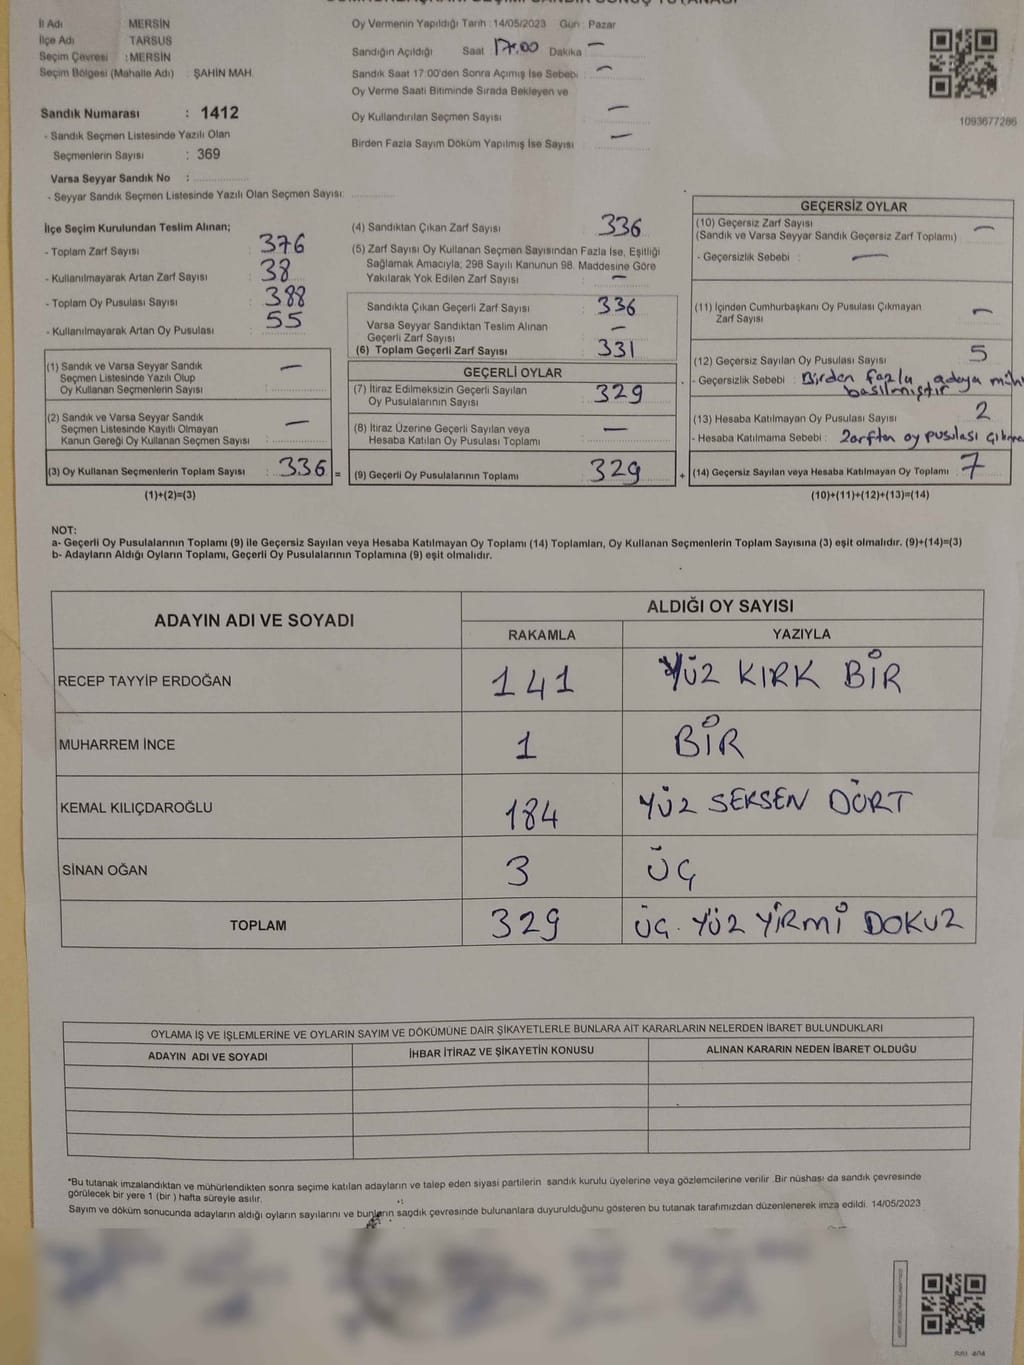 İl Adı MERSİN
İlçe Adı TARSUS
Seçim Çevresi : MERSİN
Seçim Bölgesi (Mahalle Adı) : ŞAHİN MAH.
Sandık Numarası : 1412
- Sandık Seçmen Listesinde Yazılı Olan
Seçmenlerin Sayısı : 369
Varsa Seyyar Sandık No : ..............
- Seyyar Sandık Seçmen Listesinde Yazılı Olan Seçmen Sayısı: ..............
Oy Vermenin Yapıldığı Tarih : 14/05/2023 Gün : Pazar
Sandığın Açıldığı Saat 17.00 Dakika —
Sandık Saat 17:00'den Sonra Açımış İse Sebebi —
Oy Verme Saati Bitiminde Sırada Bekleyen ve
Oy Kullandırılan Seçmen Sayısı —
Birden Fazla Sayım Döküm Yapılmış İse Sayısı —
1093677286
İlçe Seçim Kurulundan Teslim Alınan;
- Toplam Zarf Sayısı : 376
- Kullanılmayarak Artan Zarf Sayısı : 38
- Toplam Oy Pusulası Sayısı : 388
- Kullanılmayarak Artan Oy Pusulası : 55
(1) Sandık ve Varsa Seyyar Sandık
Seçmen Listesinde Yazılı Olup
Oy Kullanan Seçmenlerin Sayısı : —
(2) Sandık ve Varsa Seyyar Sandık
Seçmen Listesinde Kayıtlı Olmayan
Kanun Gereği Oy Kullanan Seçmen Sayısı : —
(3) Oy Kullanan Seçmenlerin Toplam Sayısı : 336 =
(1)+(2)=(3)
(4) Sandıktan Çıkan Zarf Sayısı : 336
(5) Zarf Sayısı Oy Kullanan Seçmen Sayısından Fazla İse, Eşitliği
Sağlamak Amacıyla; 298 Sayılı Kanunun 98. Maddesine Göre
Yakılarak Yok Edilen Zarf Sayısı : —
Sandıkta Çıkan Geçerli Zarf Sayısı : 336
Varsa Seyyar Sandıktan Teslim Alınan
Geçerli Zarf Sayısı : —
(6) Toplam Geçerli Zarf Sayısı : 331
GEÇERLİ OYLAR
(7) İtiraz Edilmeksizin Geçerli Sayılan
Oy Pusulalarının Sayısı : 329
(8) İtiraz Üzerine Geçerli Sayılan veya
Hesaba Katılan Oy Pusulası Toplamı : —
(9) Geçerli Oy Pusulalarının Toplamı : 329 +
GEÇERSİZ OYLAR
(10) Geçersiz Zarf Sayısı
(Sandık ve Varsa Seyyar Sandık Geçersiz Zarf Toplamı) —
- Geçersizlik Sebebi : —
(11) İçinden Cumhurbaşkanı Oy Pusulası Çıkmayan
Zarf Sayısı —
(12) Geçersiz Sayılan Oy Pusulası Sayısı 5
- Geçersizlik Sebebi : Birden fazla adaya
basılmıştır
(13) Hesaba Katılmayan Oy Pusulası Sayısı 2
- Hesaba Katılmama Sebebi : Zarftan oy pusulası
(14) Geçersiz Sayılan veya Hesaba Katılmayan Oy Toplamı 7
(10)+(11)+(12)+(13)=(14)
NOT:
a- Geçerli Oy Pusulalarının Toplamı (9) ile Geçersiz Sayılan veya Hesaba Katılmayan Oy Toplamı (14) Toplamları, Oy Kullanan Seçmenlerin Toplam Sayısına (3) eşit olmalıdır. (9)+(14)=(3)
b- Adayların Aldığı Oyların Toplamı, Geçerli Oy Pusulalarının Toplamına (9) eşit olmalıdır.
ADAYIN ADI VE SOYADI ALDIĞI OY SAYISI
RAKAMLA YAZIYLA
RECEP TAYYİP ERDOĞAN 141 YÜZ KIRK BİR
MUHARREM İNCE 1 BİR
KEMAL KILIÇDAROĞLU 184 YÜZ SEKSEN DÖRT
SİNAN OĞAN 3 ÜÇ
TOPLAM 329 ÜÇ YÜZ YİRMİ DOKUZ
OYLAMA İŞ VE İŞLEMLERİNE VE OYLARIN SAYIM VE DÖKÜMÜNE DAİR ŞİKAYETLERLE BUNLARA AİT KARARLARIN NELERDEN İBARET BULUNDUKLARI
ADAYIN ADI VE SOYADI İHBAR İTİRAZ VE ŞİKAYETİN KONUSU ALINAN KARARIN NEDEN İBARET OLDUĞU
*Bu tutanak imzalandıktan ve mühürlendikten sonra seçime katılan adayların ve talep eden siyasi partilerin sandık kurulu üyelerine veya gözlemcilerine verilir .Bir nüshası da sandık çevresinde
görülecek bir yere 1 (bir ) hafta süreyle asılır.
Sayım ve döküm sonucunda adayların aldığı oyların sayılarını ve bunların sandık çevresinde bulunanlara duyurulduğunu gösteren bu tutanak tarafımızdan düzenlenerek imza edildi. 14/05/2023